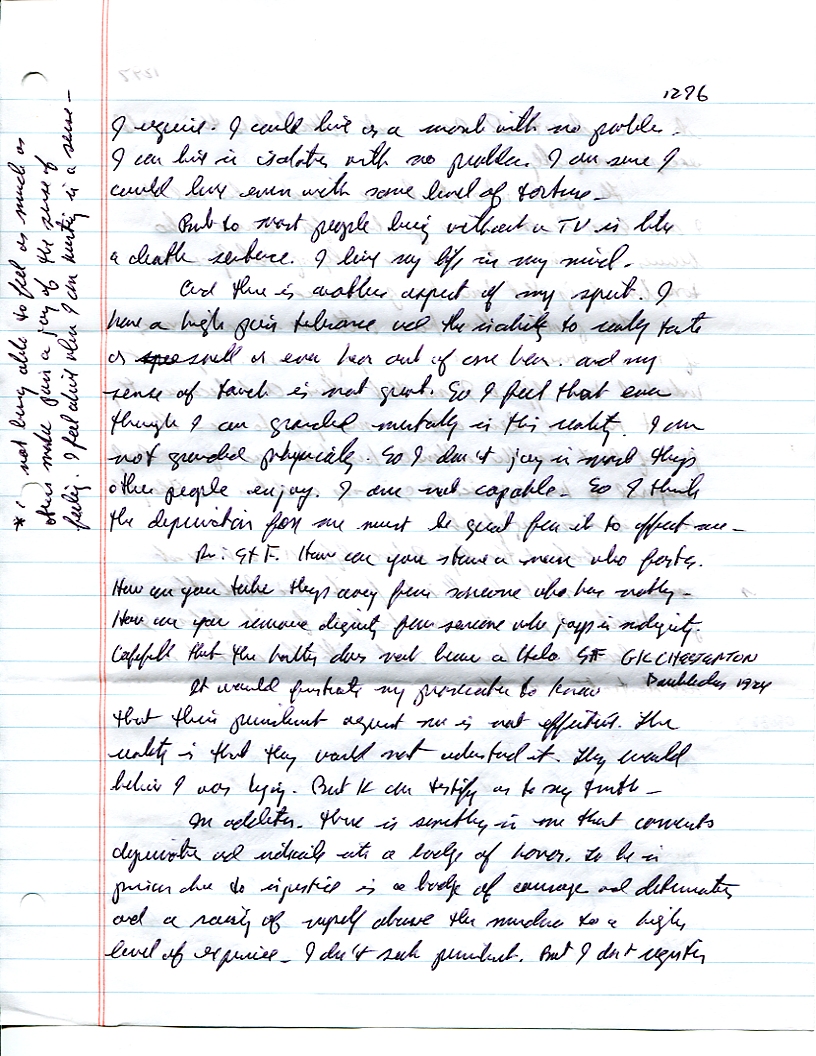 1296
I require. I could live as a monk with no problem.
I can live in isolation with no problem. I am sure I
could live even with some level of torture -
But to most people being without a TV is like
a death sentence. I live my life in my mind.
And there is another aspect of my spirit. I
have a high pain tolerance and the inability to really taste
or smell or even hear out of one ear. and my
sense of touch is not great. So I feel that even
though I am grounded mentally in this reality. I am
not grounded physically. So I don't joy in most things
other people enjoy. I am not capable - So I think
the deprivation for me must be great for it to effect me -
Re: St F. How can you starve a man who fasts.
How can you take things away from someone who has nothing -
How can you remove dignity from someone who joys in indignity.
that the does not become a Halo St F GK CHESTERTON
Doubleday 1924
It would frustrate my to know
that their punishment against me is not effective. The
reality is that they would not understand it. They would
believe I was lying. But K can testify as to my truth -
In addition. there is something in me that converts
deprivation and into a badge of honor. To be in
prison due to injustice is a badge of courage and determination
and a raising of myself above the mundane to a higher
level of experience - I don't seek punishment. But I don't register
*: not being able to feel as much as
others make pain a joy of the sense of
feeling. I feel alive when I am hurting in a sense -